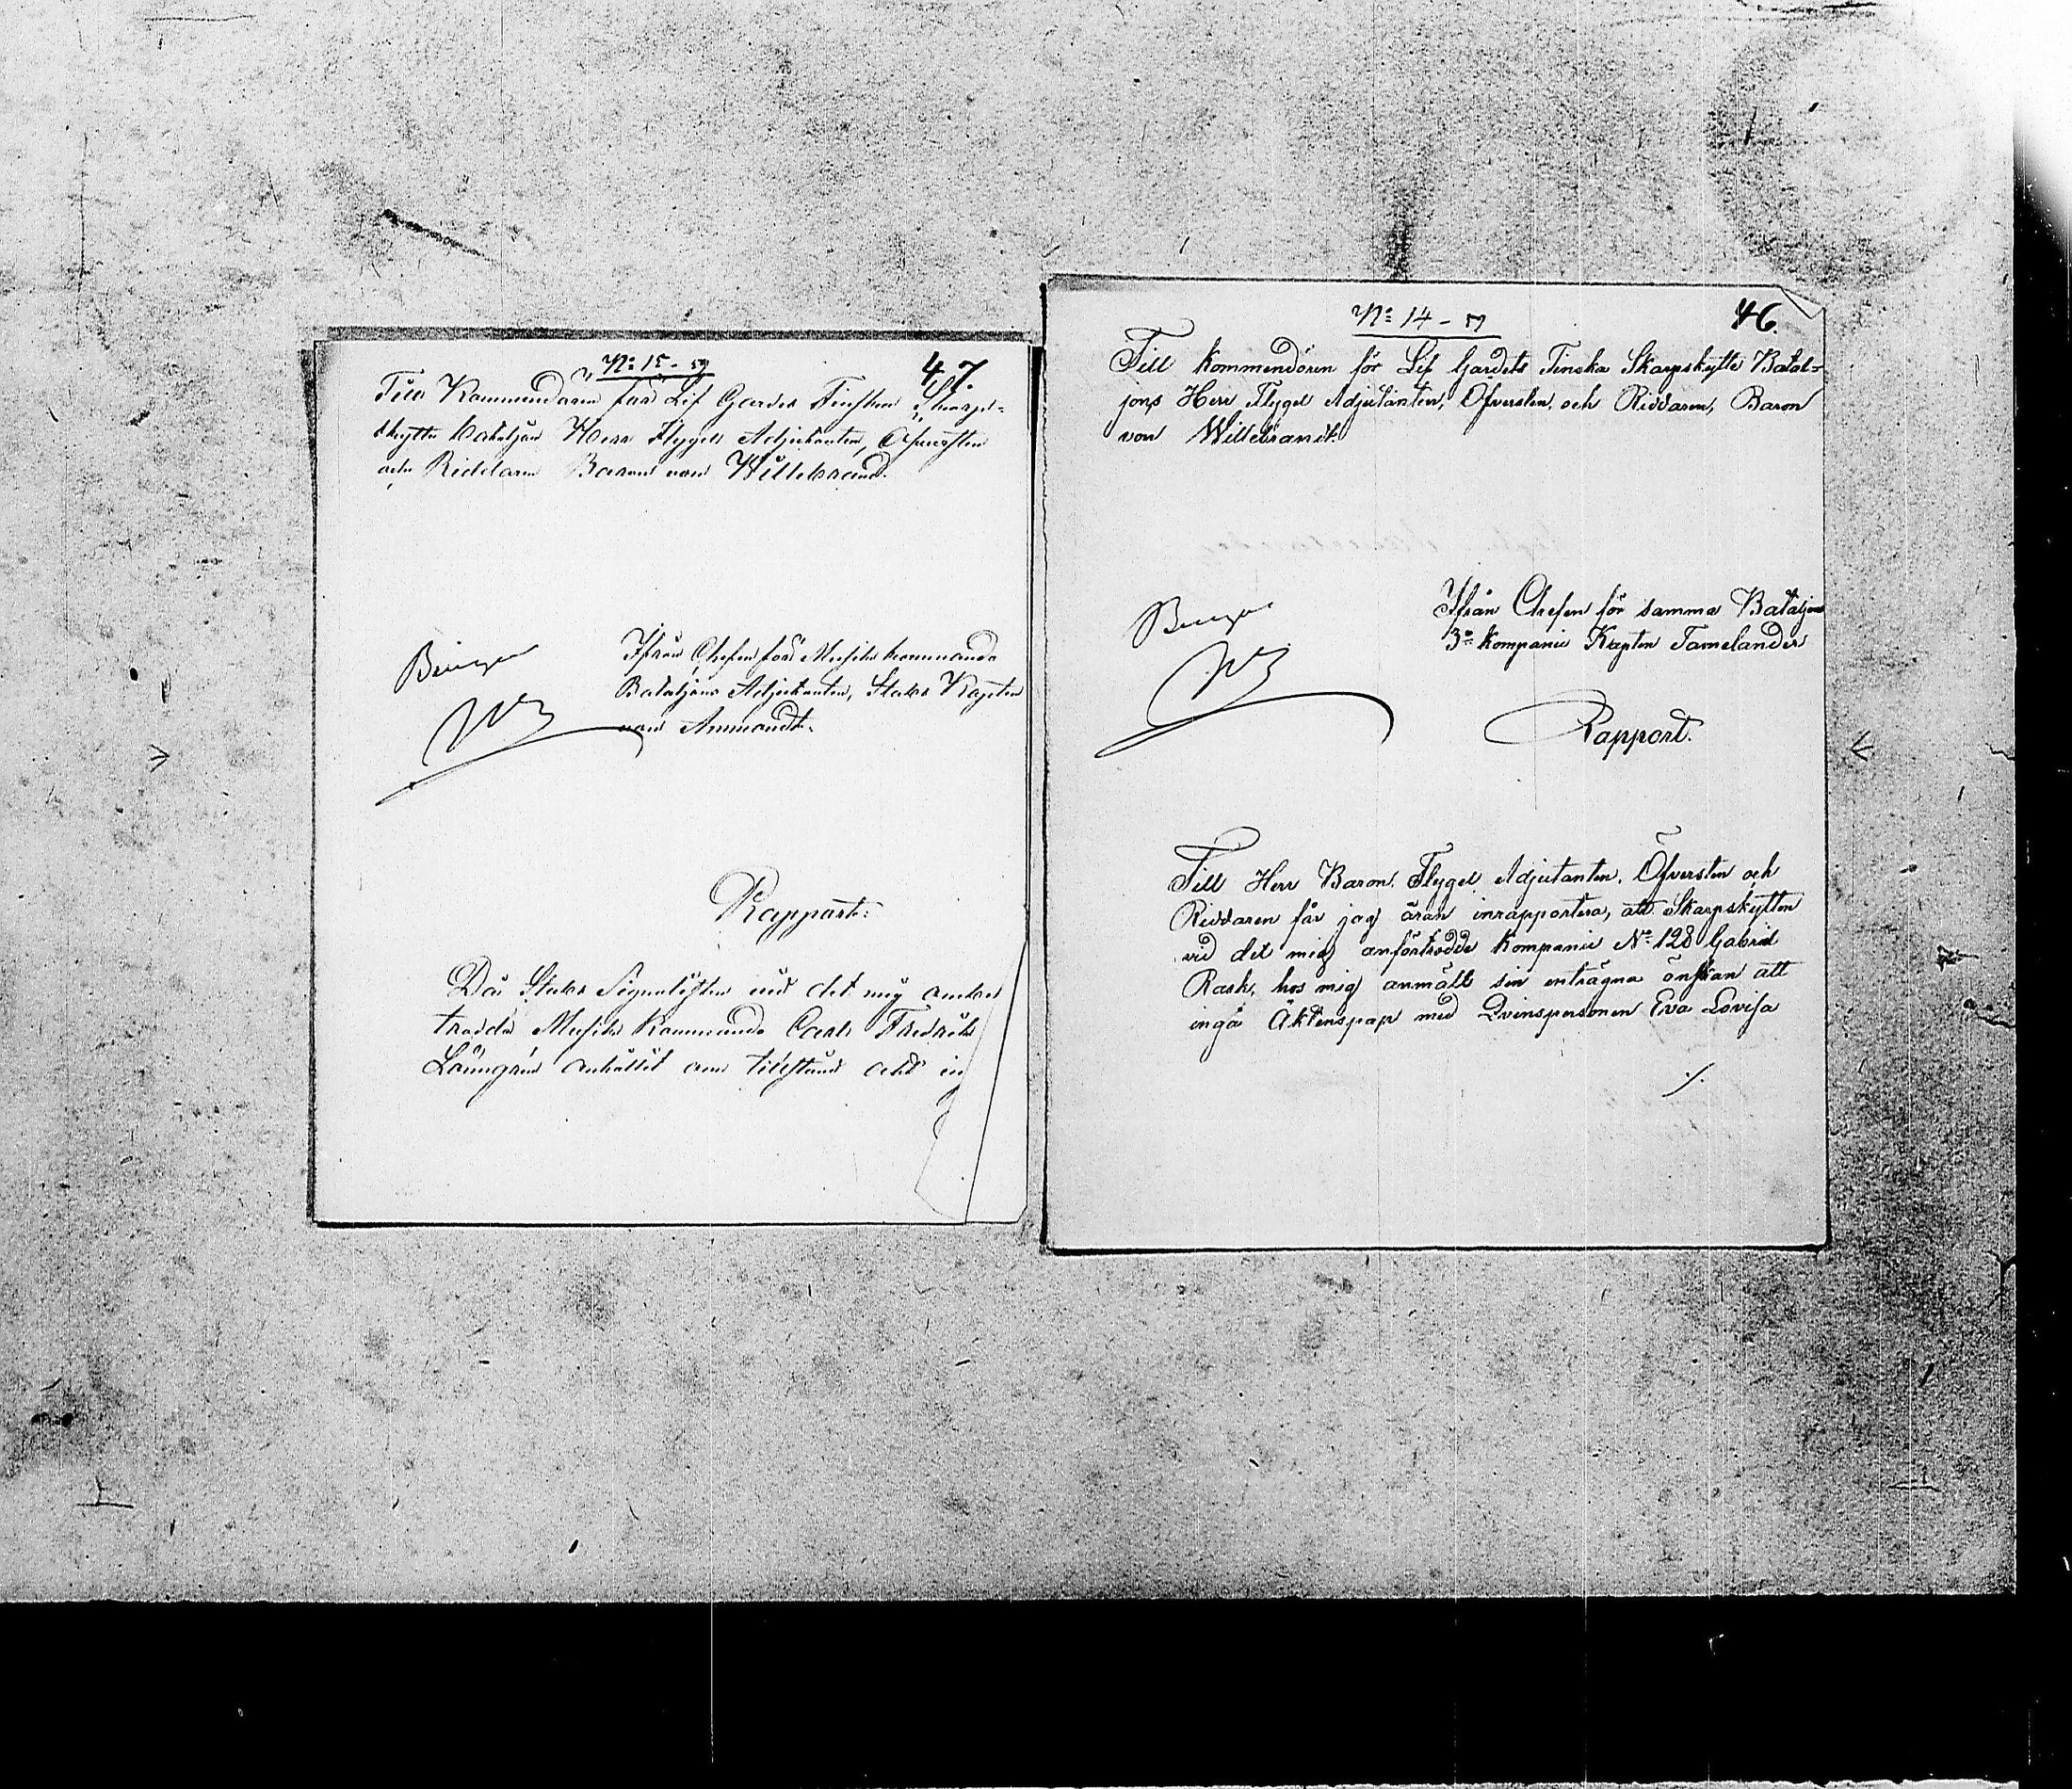 No 15 - 59
47.
Till Kommendören för Lif Gardes Finska Skarp-
skytte bataljon Herr Flygel Adjutanten, Öfversten
och Riddaren Baron von Willebrand.
Ifrån Chefen för Musik kommando
Bataljons Adjutanten, Stabs Kapten
von Ammondt.
Rapport:
Då Stabs Signalisten vid det mig anför
trodda Musik Kommando Carl Fredrik
Löfngrén anhållit om tillstånd att in
No 14 - 59
46.
Till Kommendören för Lif Gardets Finska Skarpskytte Batal-
jons Herr Flygel Adjutanten, Öfversten, och Riddaren, Baron
von Willebrandt.
Ifrån Chefen för samma Bataljons
3e Kompanie Kapten Tamelander
Rapport.
Till Herr Baron, Flygel Adjutanten, Öfversten och
Riddaren får jag äran inrapportera, att Skarpskytten
vid det mig anförtrodde Kompanie No 128 Gabriel
Rask, hos mig anmält sin enträgna önskan att
ingå Äktenspap med Qvinspersonen Eva Lovisa
./.